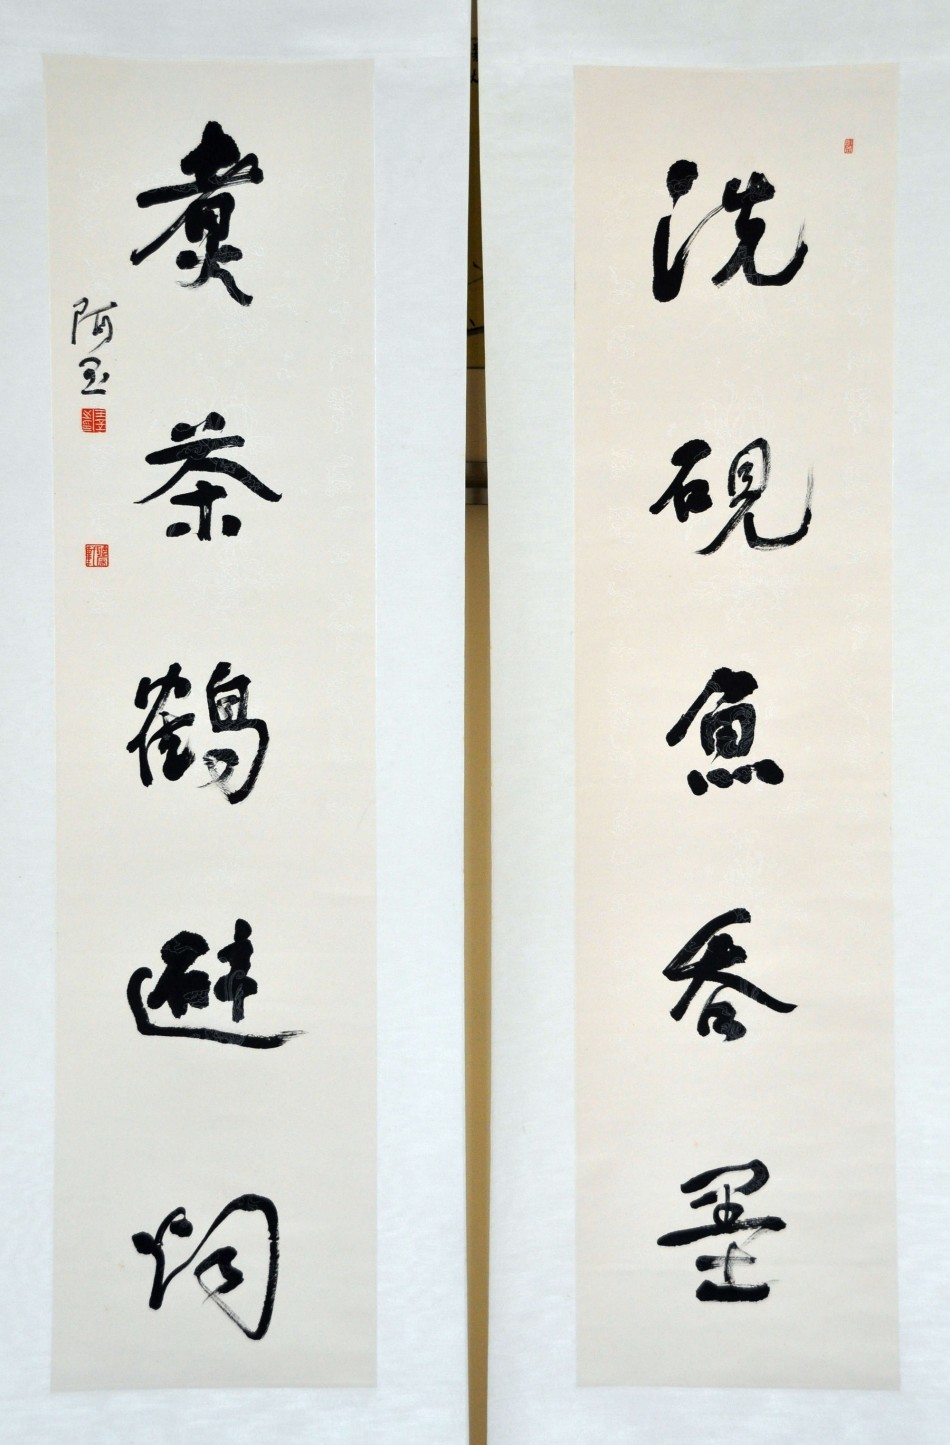 洗硯魚吞墨
煮茶鶴避烟
阿玉